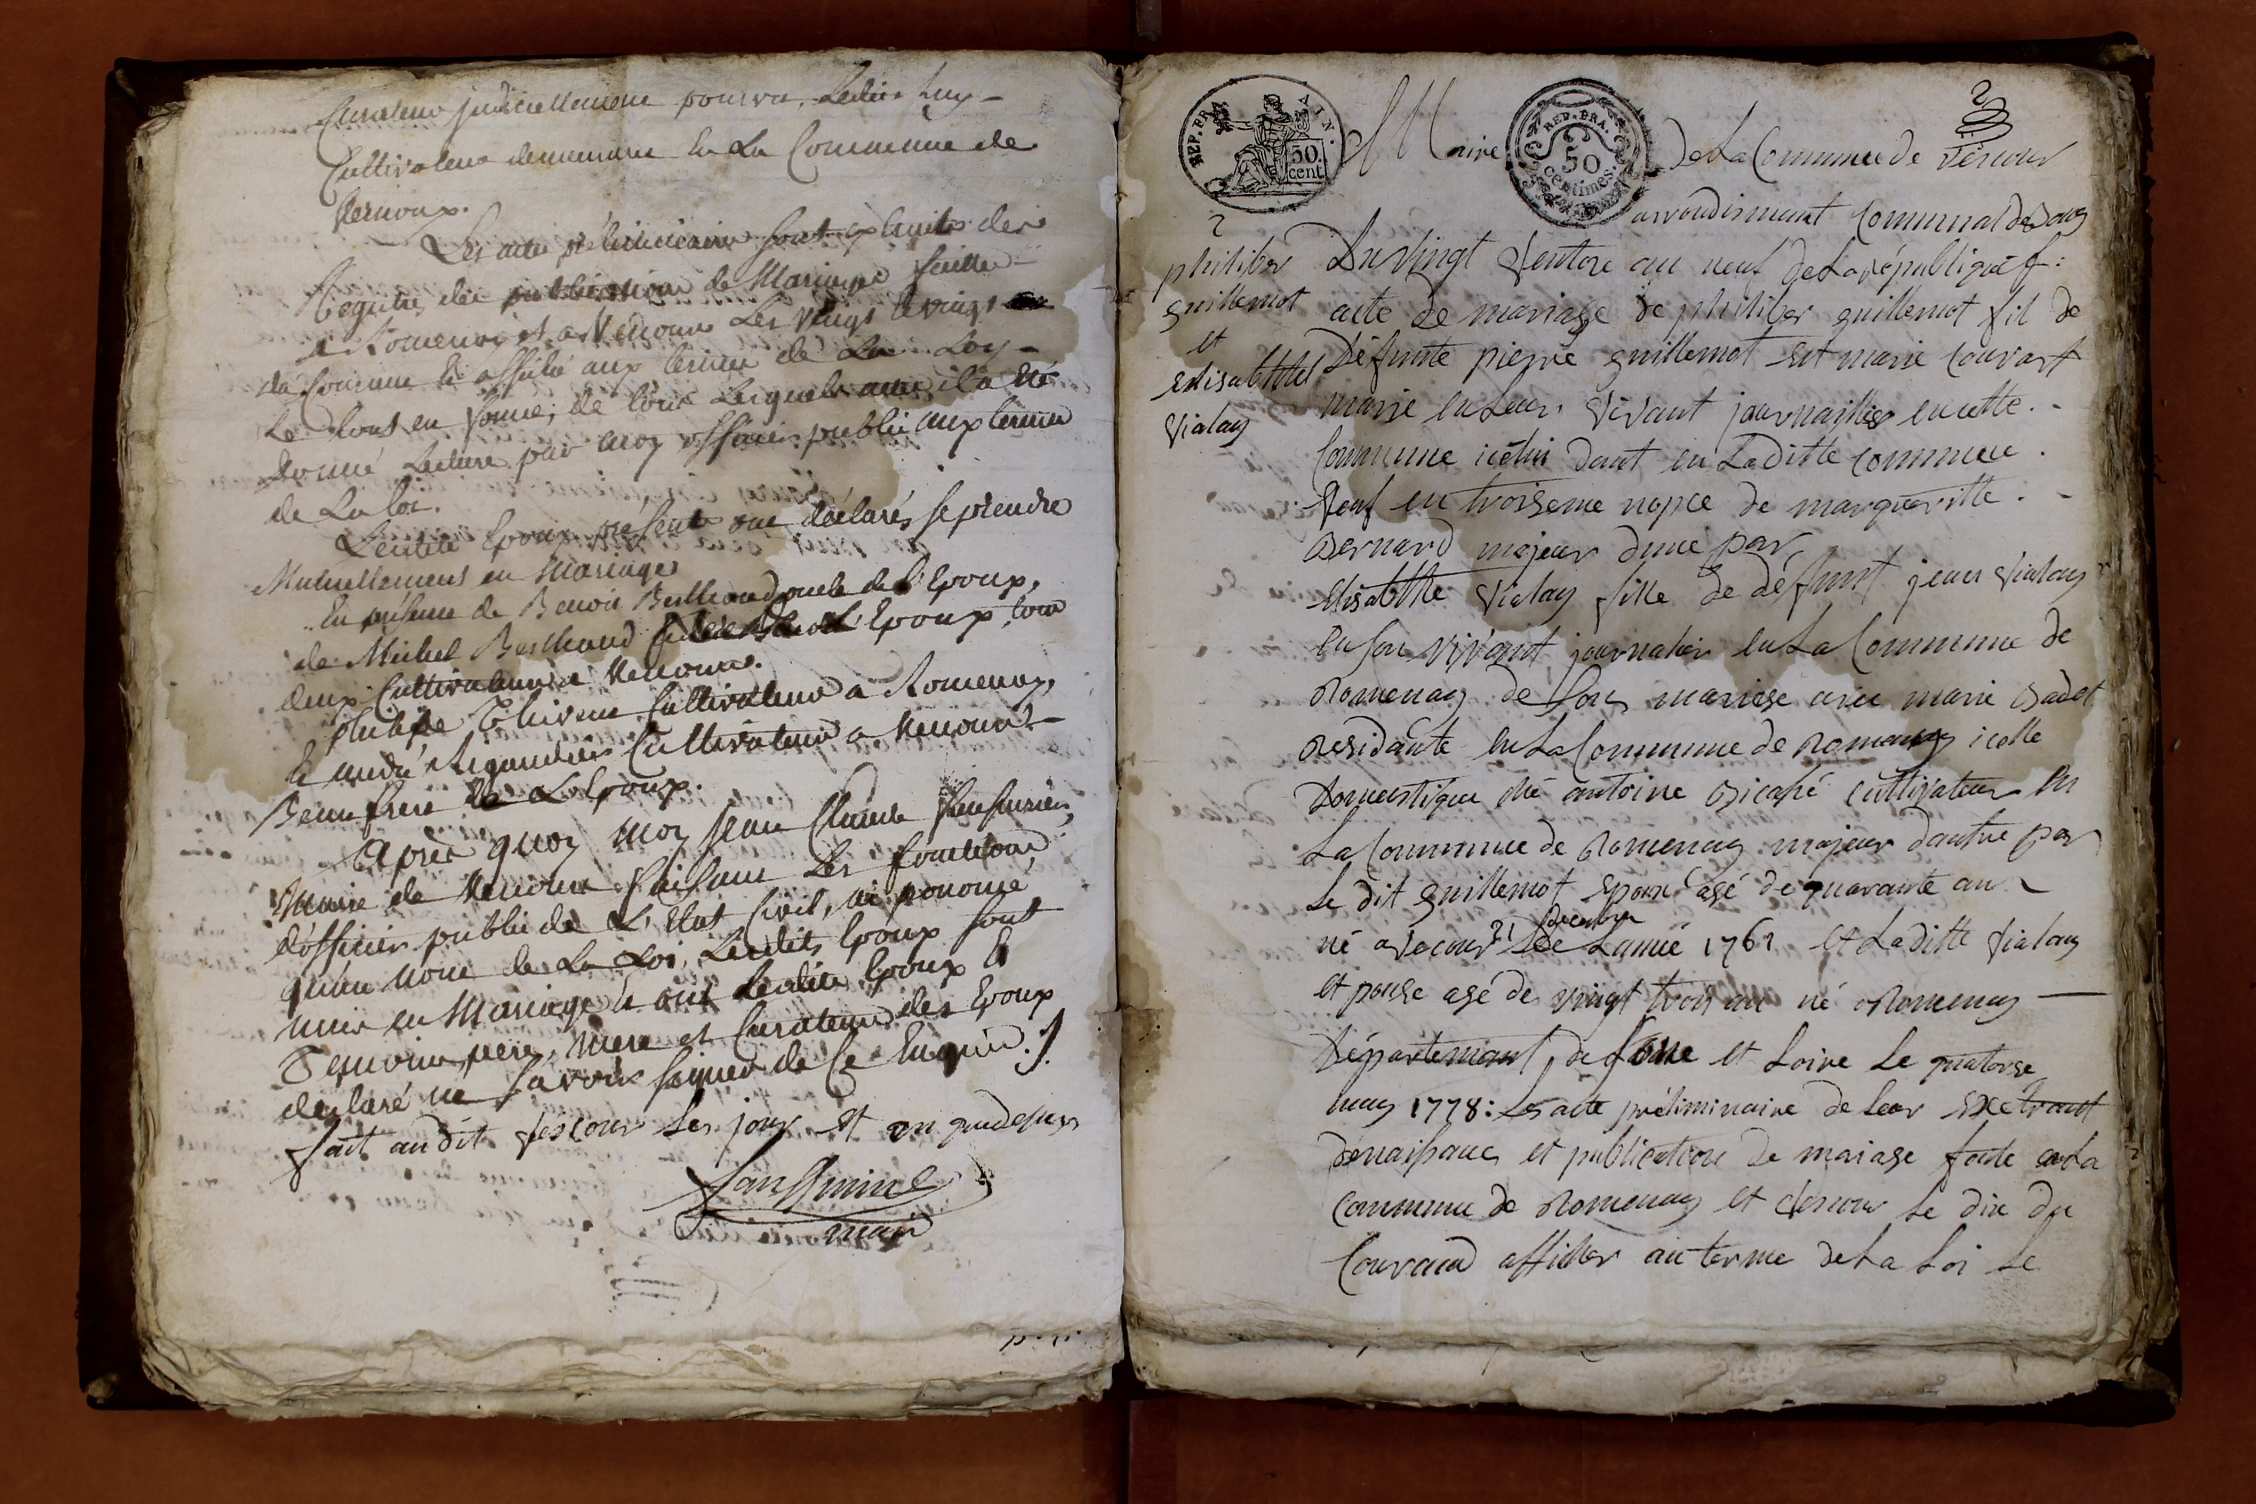 Curateur judiciellement pourvu, Ledit Luy-
Cultivateur demeurant en La Commune de
Vernoux.
Les acte préliminaire sont extraits des
Registre des publication de Mariage faitte
a Romenay et a Vécour Les vingt
du Courant et affiché aux terme de La Loy-
Le tout en forme, de tous Lesquels acte, il a été
donné Lecture par moy officier public aux terme
de La loi.
Lesdits Epoux présents ont déclarés se prendre
Mutuellement en Mariage
En présence de Benoit Berthoud oncle de l'Epoux,
de Michel Berthoud Epoux tous
deux Cultivateurs a Vécour.
Philipe Cultivateur a Romenay,
et andré Cultivateur a Vécour-
Beau frere de L'Epoux.
Après quoy moy Jean Claude
Maire de Vécour faisant Les fonctions
d'officier public de L'Etat Civil, ai prononcé
qu'au nom de La Loi, Lesdits Epoux sont
unis en Mariage et ont Lesdits Epoux et
Temoins, pere, mere et Curateur des Epoux
declaré ne savoir signer de Ce Enquis ./.
fait au dit Véscour Les jour et an que dessus
maire
REP. FRA. 50 cent. AIN.
REP. FRA. 50 centimes.
2
Maire de La Commune de Véscour
arrondismant Communal de Bourg
2
philiber
guillemot
et
Elisabthe
Vialay
Du Vingt Ventose an neuf de La république f:
acte de mariage de philiber guillemot fil de
Défunte pierre guillemot et marie Couvart
marié en Leur Vivant journaillier en cette.-
Commune icelui dant en La ditte commune.
Veuf en troiseme nopce de margueritte.-
Bernard majeur d'une par
Elisabthe Vialay fille de défunt jean Vialay
en son vivant journalier en La Commune de
Romenay de Son mariage avec marie Badet
Residante en La Commune de Romenay icelle
Domestique ché antoine cultivateur en
La Commune de Romenay majeur d'autre par
Le dit guillemot Epoux agé de quarante an
né a Vecour 21 décembre de L'anné 1761 et La ditte Vialay
Epouse agé de vingt trois an né a Romenay -
Département de Sone et Loire Le quatorse
may 1778: Les acte préliminaire de Leur Extrait
de naissance et publication de mariage faite en La
Commune de Romenay et Vescour Le dix du
Courand afficher au terme de La Loi Le